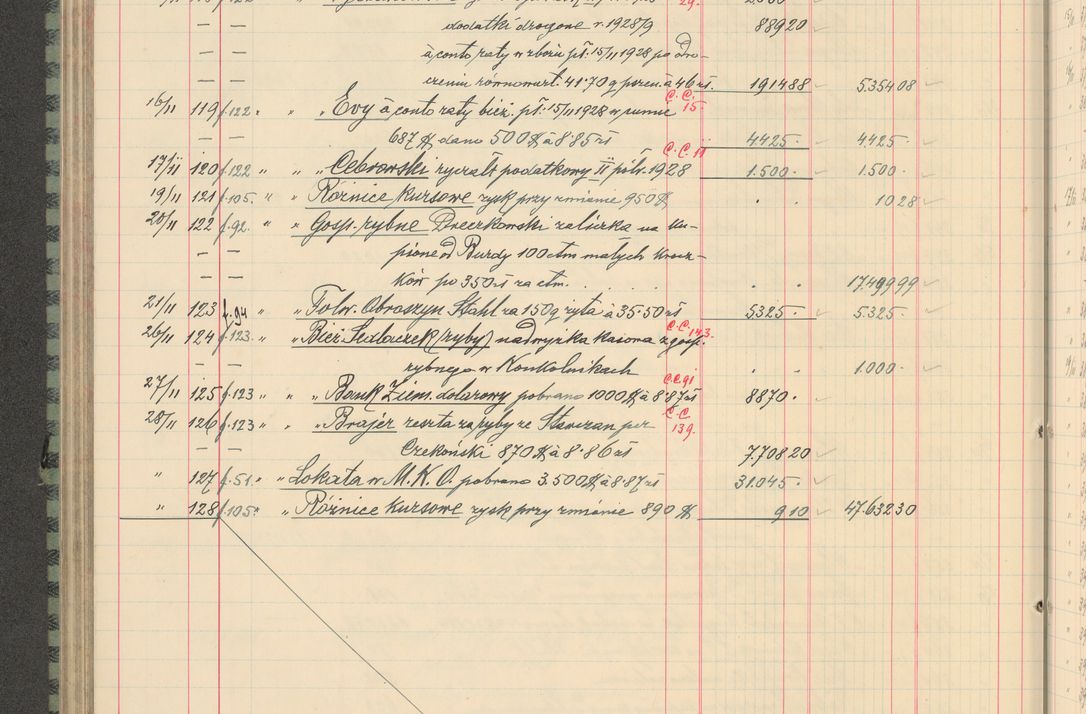 dodatki drogowe r. 1928/9 88920
— à conto raty w zbożu pł. 15/II 1928 po Dro-
— czeniu równowart. 41·70 q pszen. à 46 zł. 191488 5.35408
16/II 119 f. 122 " " " Evy à conto raty bież. pł. 15/II 1928 w sumie C.C. 15.
— — 687 $ dano 500 $ à 8·85 zł 4425· 4425·
17/II 120 f. 122 " " " Cebrowski ryczałt podatkowy II półr. 1928 C.C. 11 1.500· 1.500·
19/II 121 f. 105. " " Różnice kursowe zysk przy zmianie 950 $ · · 1028
20/II 122 f. 92. " " Gosp. rybne Dreczkowski zaliczka na ku-
— — pione od Burdy 100 ctm małych krocz-
— — ków po 350 zł za ctm. . . . . · · 17.49999
21/II 123 f. 94 " " Folw. Obroszyn Stahl za 150 q żyta à 35·50 zł 5325· 5.325·
26/II 124 f. 123. " " Bież. Sedlaczek (ryby) nadwyżka kasowa z gosp. C.C. 143.
— — rybnego w Konkolnikach · · 1.000·
27/II 125 f. 123 " " " Bank Ziem. dolarowy pobrano 1000 $ à 8·87 zł C.C. 91 8870·
28/II 126 f. 123 " " " Brajer reszta za ryby ze Stawczan per C.C. 139.
— — Czekoński 870 $ à 8·86 zł 7.70820
" 127 f. 51. " " Lokata w M.K.O. pobrano 3.500 $ à 8·87 zł 31.045·
" 128 f. 105. " " Różnice kursowe zysk przy zmianie 890 $ 910 47.63230